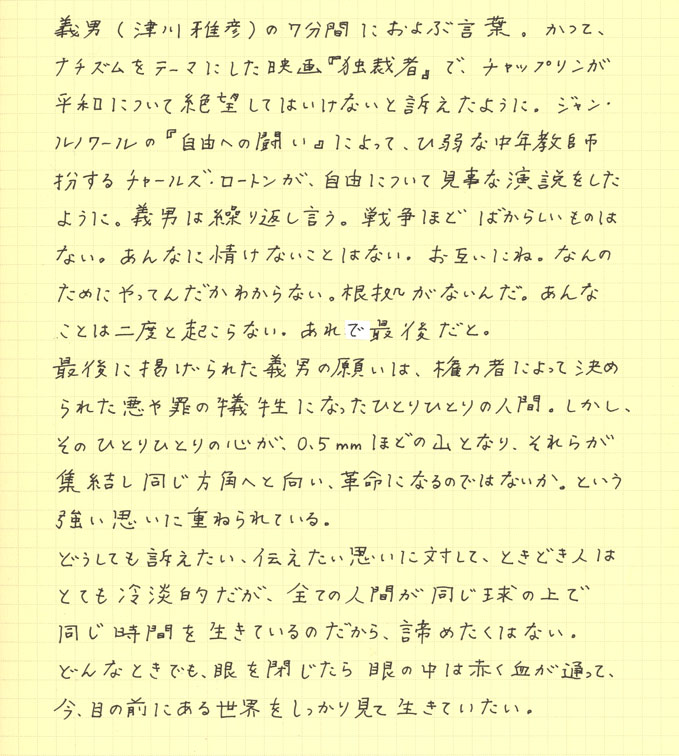 義男(津川雅彦)の7分間におよぶ言葉。かつて、
ナチズムをテーマにした映画『独裁者』で、チャップリンが
平和について絶望してはいけないと訴えたように。ジャン・
ルノワールの『自由への闘い』によって、ひ弱な中年教師
扮するチャールズ・ロートンが、自由について見事な演説をした
ように。義男は繰り返し言う。戦争ほどばからしいものは
ない。あんなに情けないことはない。お互いにね。なんの
ためにやってんだかわからない。根拠がないんだ。あんな
ことは二度と起こらない。あれで最後だと。
最後に掲げられた義男の願いは、権力者によって決め
られた悪や罪の犠牲になったひとりひとりの人間。しかし、
そのひとりひとりの心が、0.5mmほどの山となり、それらが
集結し同じ方角へと向い、革命になるのではないか。という
強い思いに重ねられている。
どうしても訴えたい、伝えたい思いに対して、ときどき人は
とても冷淡的だが、全ての人間が同じ球の上で
同じ時間を生きているのだから、諦めたくはない。
どんなときでも、眼を閉じたら眼の中は赤く血が通って、
今、目の前にある世界をしっかり見て生きていたい。